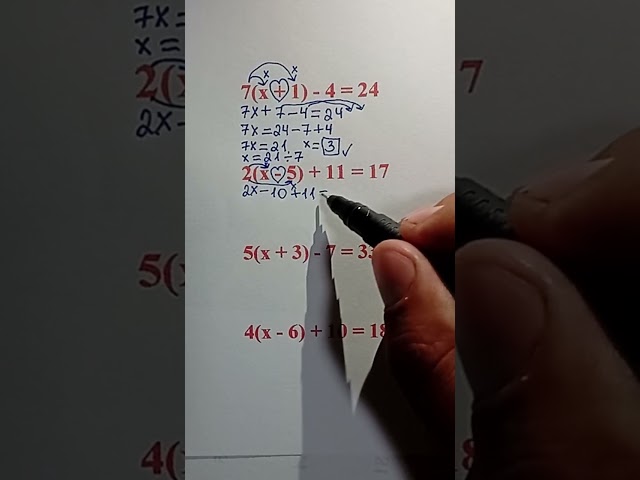 7(x + 1) - 4 = 24
7x + 7 - 4 = 24
7x = 24 - 7 + 4
7x = 21 x = 3 ✓
x = 21 ÷ 7
2(x - 5) + 11 = 17
2x - 10 + 11 =
5(x + 3) - 7 = 3
4(x - 6) + 10 = 18